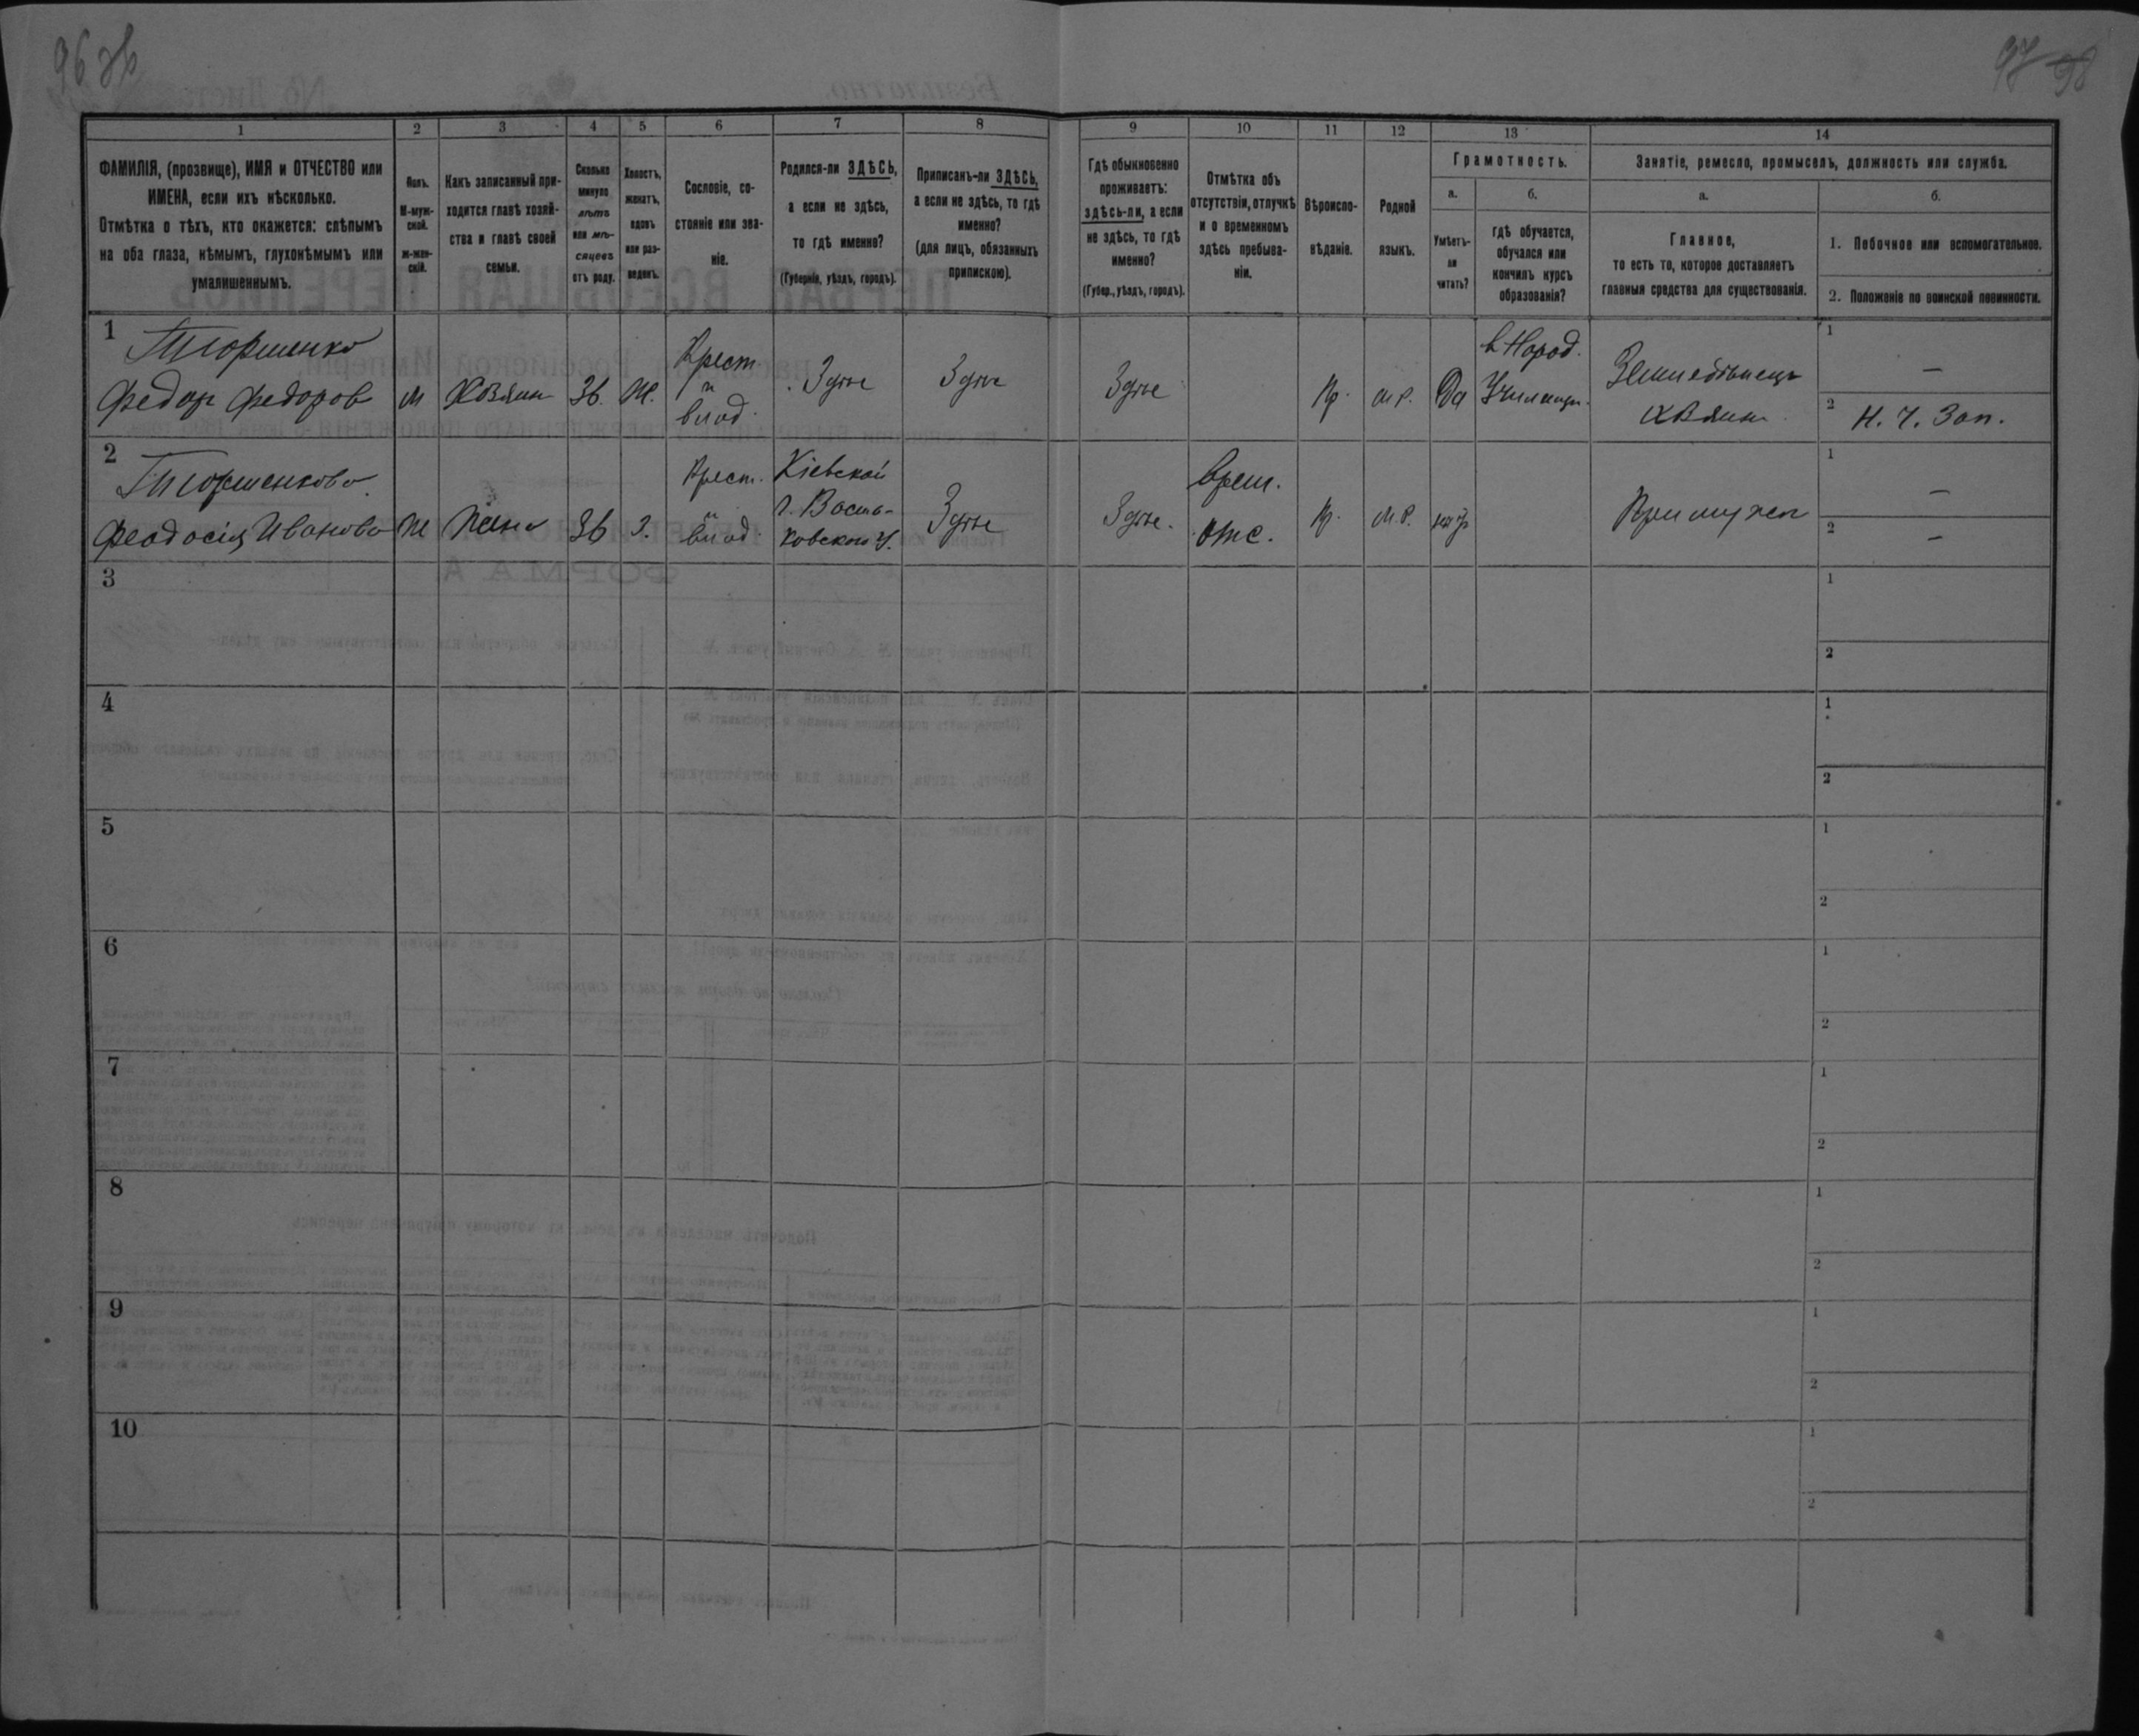 96 зв
97 98
1 2 3 4 5 6 7 8 9 10 11 12 13 14
ФАМИЛІЯ, (прозвище), ИМЯ и ОТЧЕСТВО или
ИМЕНА, если ихъ нѣсколько.
Отмѣтка о тѣхъ, кто окажется: слѣпымъ
на оба глаза, нѣмымъ, глухонѣмымъ или
умалишеннымъ.
Полъ.
М-муж-
ской.
ж-жен-
скій.
Какъ записанный при-
ходится главѣ хозяй-
ства и главѣ своей
семьи.
Сколько
минуло
лѣтъ
или мѣ-
сяцевъ
отъ роду.
Холостъ,
женатъ,
вдовъ
или раз-
веденъ.
Сословіе, со-
стояніе или зва-
ніе.
Родился-ли ЗДѢСЬ,
а если не здѣсь,
то гдѣ именно?
(Губернія, уѣздъ, городъ).
Приписанъ-ли ЗДѢСЬ,
а если не здѣсь, то гдѣ
именно?
(для лицъ, обязанныхъ
припискою).
Гдѣ обыкновенно
проживаетъ:
здѣсь-ли, а если
не здѣсь, то гдѣ
именно?
(Губер., уѣздъ, городъ).
Отмѣтка объ
отсутствіи, отлучкѣ
и о временномъ
здѣсь пребыва-
ніи.
Вѣроиспо-
вѣданіе.
Родной
языкъ.
Грамотность.
а.
Умѣетъ-
ли
читать?
б.
гдѣ обучается,
обучался или
кончилъ курсъ
образованія?
Занятіе, ремесло, промыселъ, должность или служба.
а.
Главное,
то есть то, которое доставляетъ
главныя средства для существованія.
б.
1. Побочное или вспомогательное.
2. Положеніе по воинской повинности.
1
Федор Федоров
М
Хозяин
36.
Ж.
Крест
и
влад.
Здѣсь
Здѣсь
Здѣсь
Пр.
М.Р.
Да
в Народ.
Училищѣ.
Земледѣлецъ
хозяин
1 —
2 Н. Ч. Зап.
2
Феодосія Иванова
Ж
Жена
36
З.
Крест.
и
влад.
Кіевской
г. Василь-
ковского У.
Здѣсь
Здѣсь.
Врем.
отс.
Пр.
М.Р.
При мужѣ
1 —
2 —
3
1
2
4
1
2
5
1
2
6
1
2
7
1
2
8
1
2
9
1
2
10
1
2